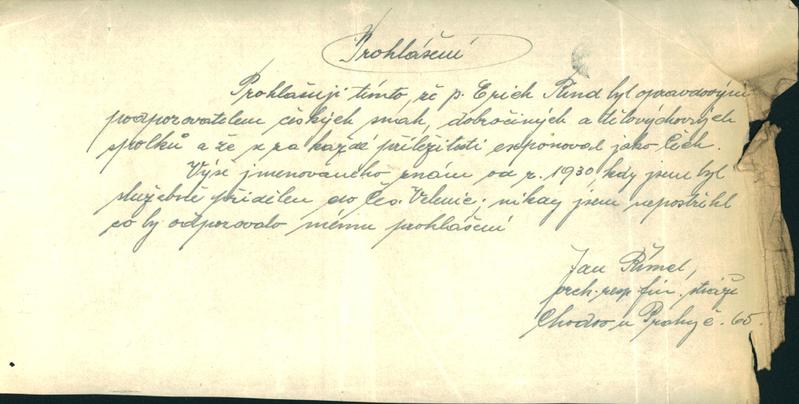 Prohlášení
Prohlašuji tímto, že p. Erich Rind byl opravdovým
podporovatelem českých snah, dobročiných a tělovýchovných
spolků a že se za každé příležitosti exponoval jako Čech.
Výše jmenovaného znám od r. 1930, kdy jsem byl
služebně přidělen do Čes. Velenic; nikdy jsem nepostřehl
co by odporovalo mému prohlášení
Jan Římel,
resp. fin. stráže
Chodov u Prahy č. 65.